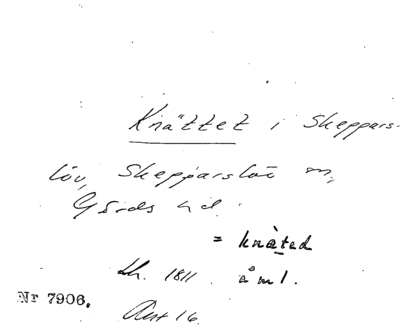 Knättet i Skeppars-
löv, Skepparslöv sn,
Gärds hd.
= knàtad
Lh. 1811. åml.
Nr 7906.
Akt 16